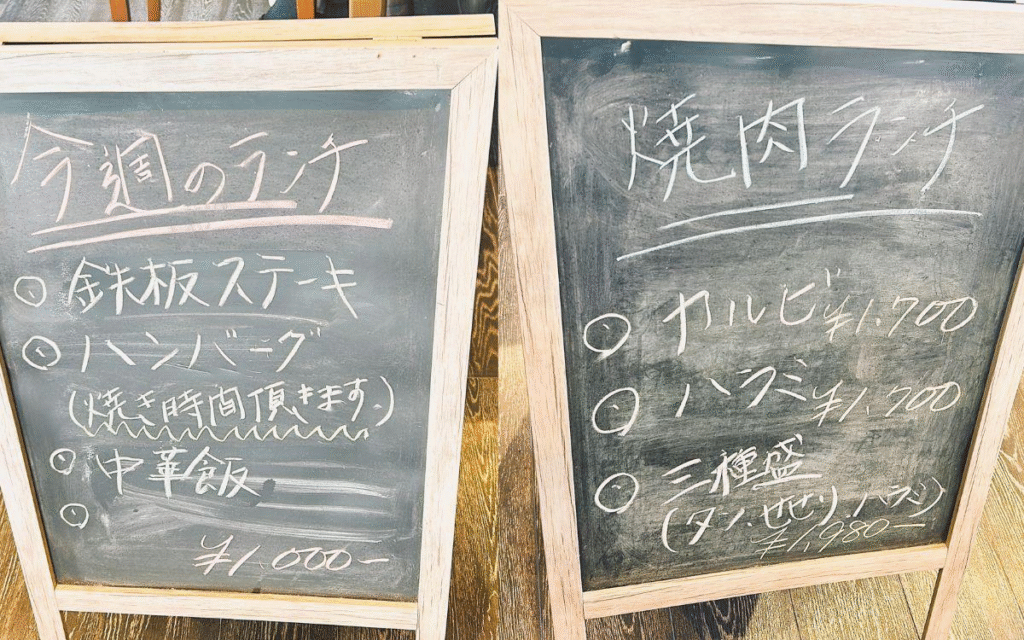 今週のランチ
鉄板ステーキ
ハンバーグ
(焼き時間頂きます。)
中華飯
¥1,000-
焼肉ランチ
カルビ ¥1,700
ハラミ ¥1,700
三種盛
(タン、せせり、ハラミ)
¥1,980-